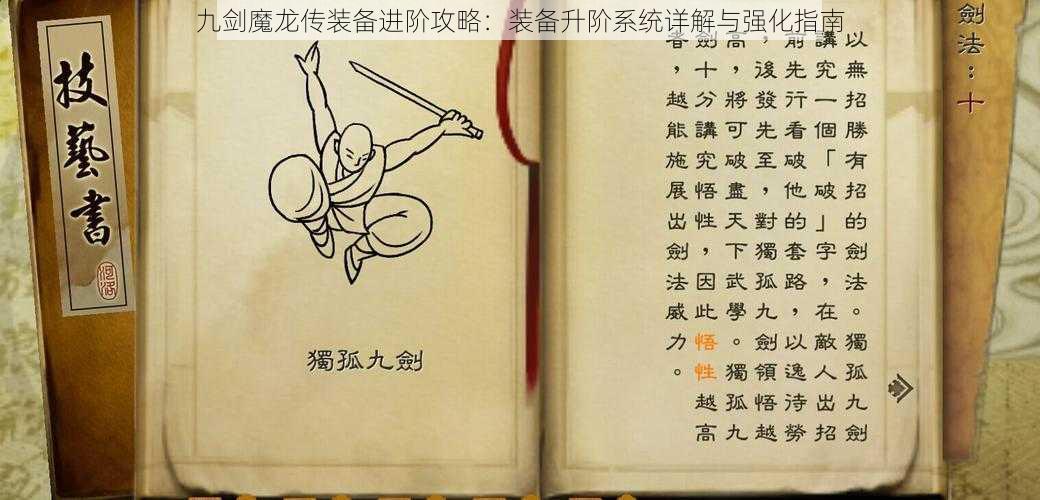 九剑魔龙传装备进阶攻略：装备升阶系统详解与强化指南
劍法：十
以無招勝有招的劍法。獨孤九劍
講究一個「破」字，在敵人出招
前先行看破他的套路，以逸待勞
，後發先至，對獨孤九劍領悟越
高，將可破盡天下武學。獨孤九
劍十分講究悟性，因此悟性越高
者，越能施展出劍法威力。
獨孤九劍
技藝書
河洛